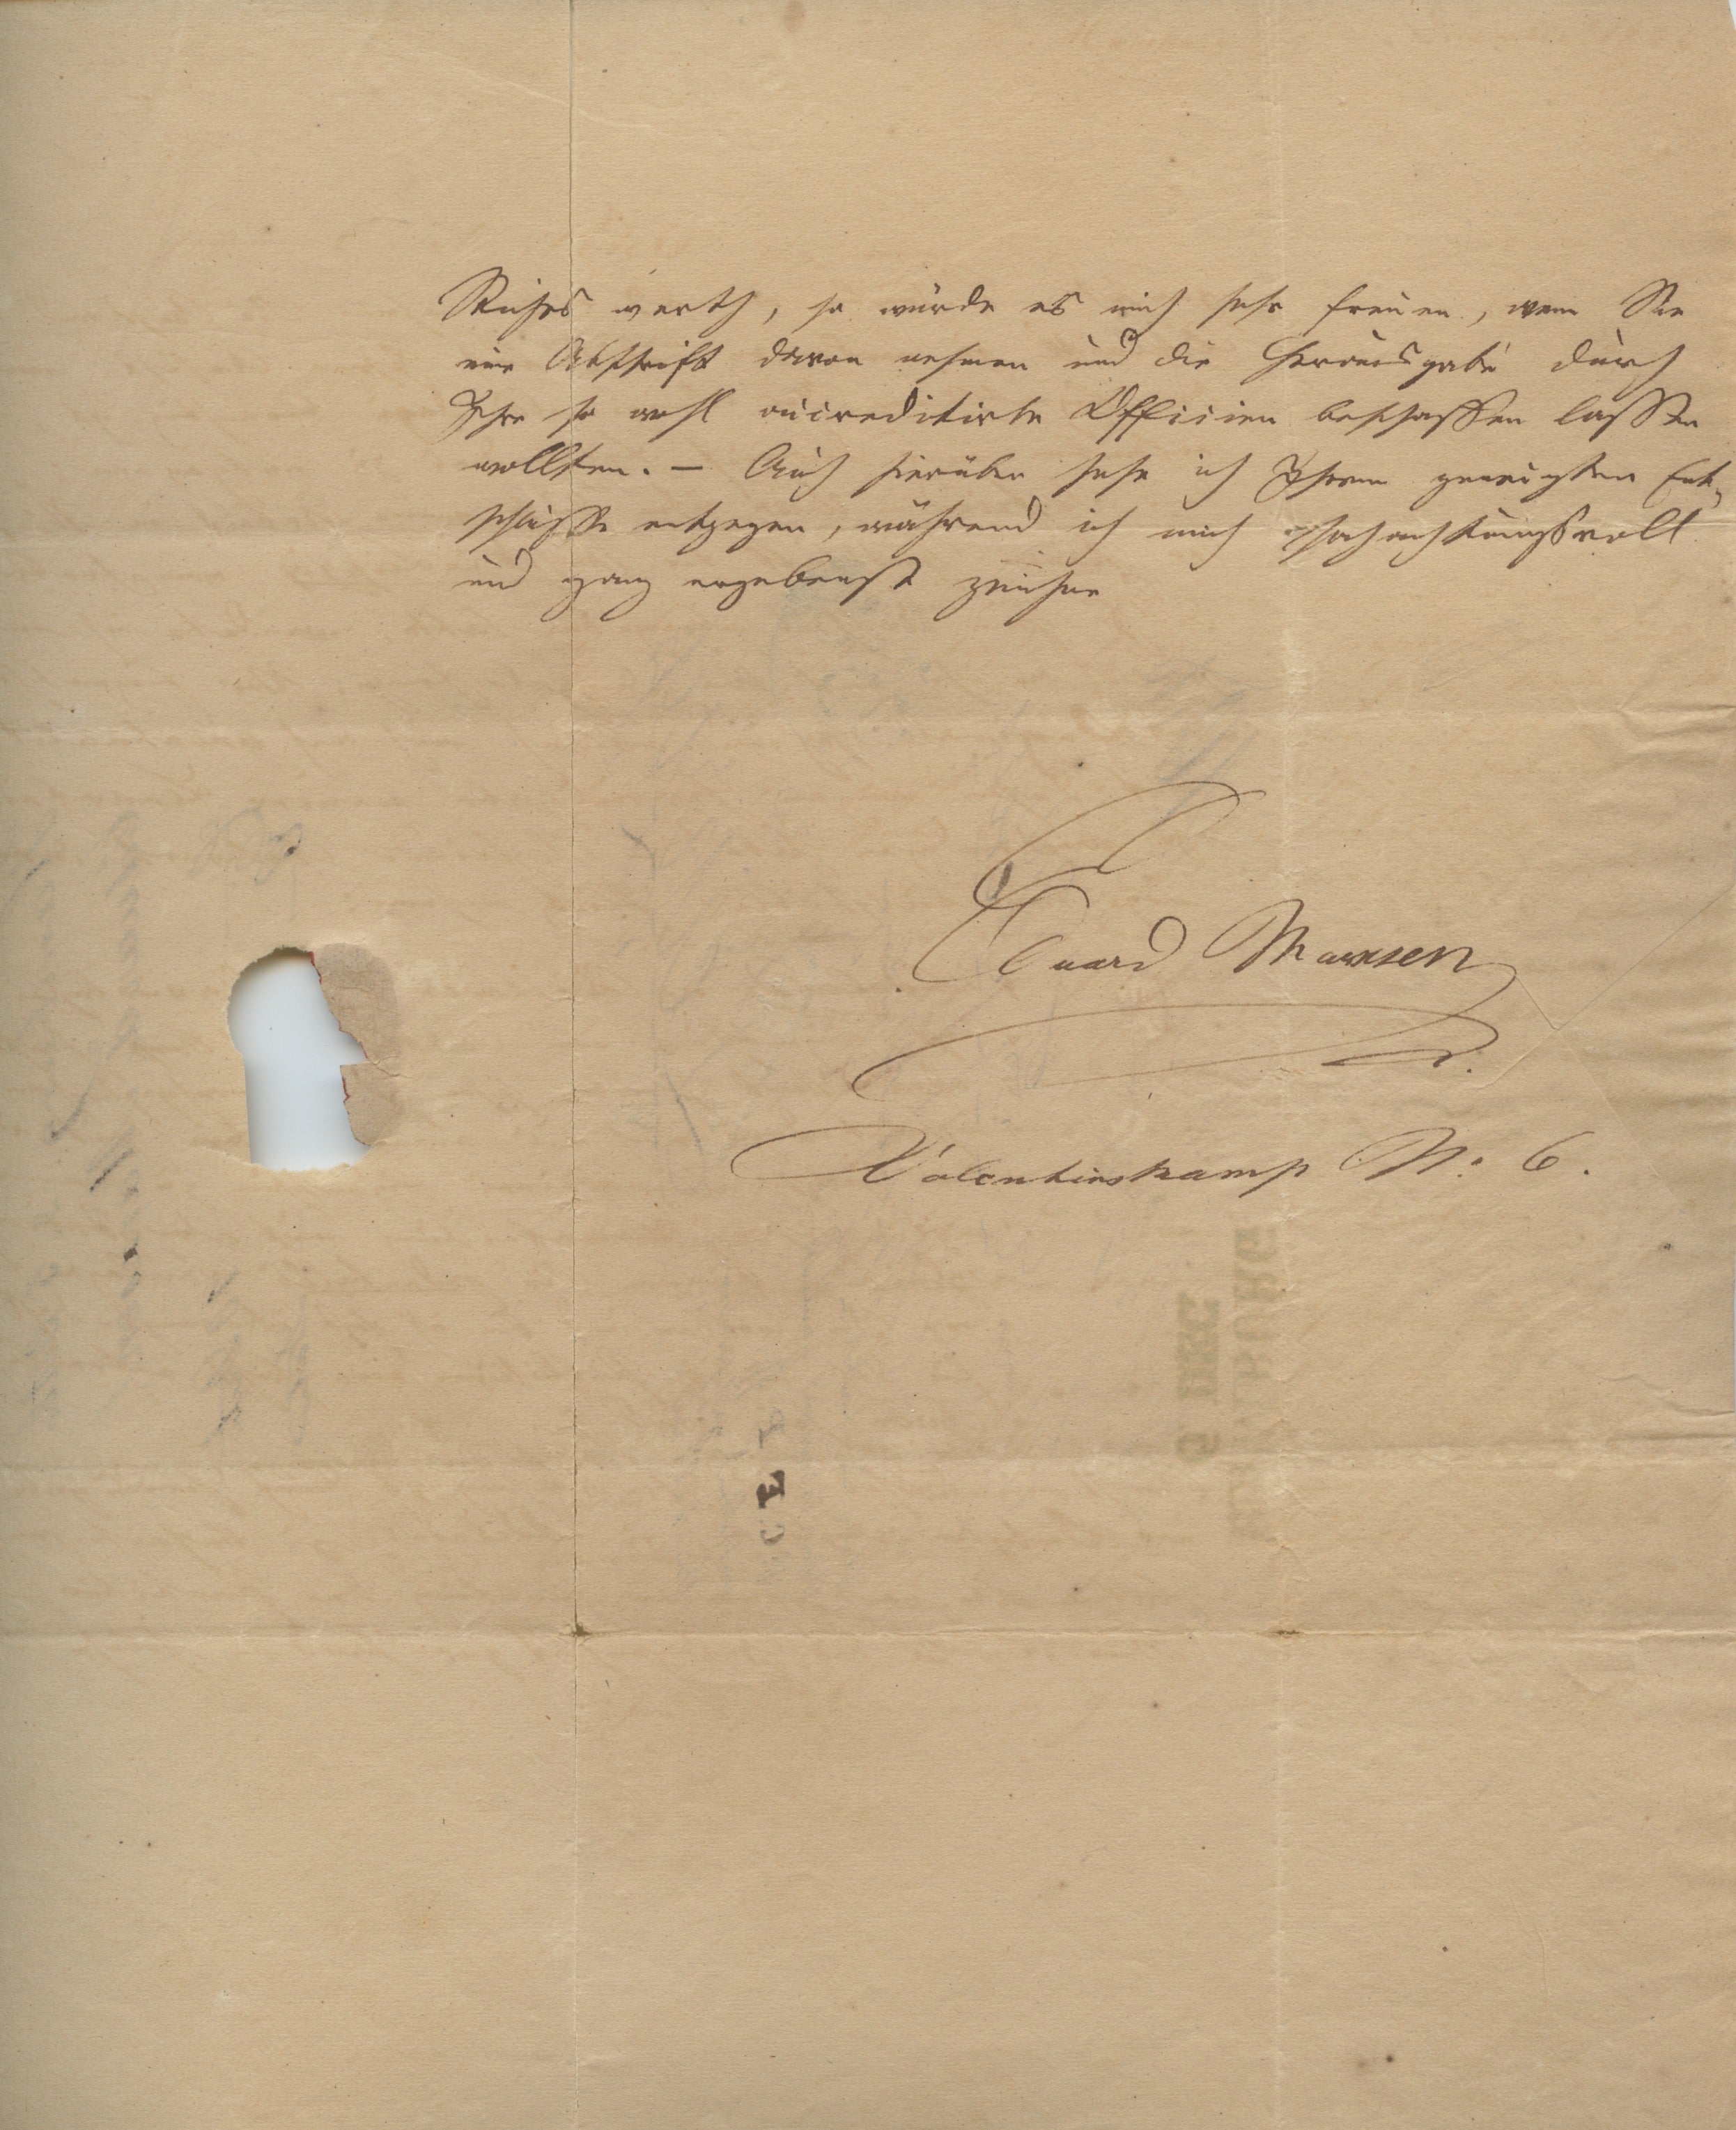 Stiches werth, so würde es mich sehr freuen, wenn Sie
eine Abschrift davon nehmen und die Herausgabe durch
Ihre so wohl accreditirte Officien beschaffen lassen
wollten. — Auch hierüber sehe ich Ihrem geneigten Ent-
schlusse entgegen, während ich mich hochachtungsvoll
und ganz ergebenst zeichne
Eduard Marxsen
Valentinskamp No: 6.